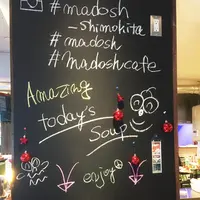 #madosh
-shimokita
#madosh
#madoshcafe
Amazing
today's
Soup
enjoy